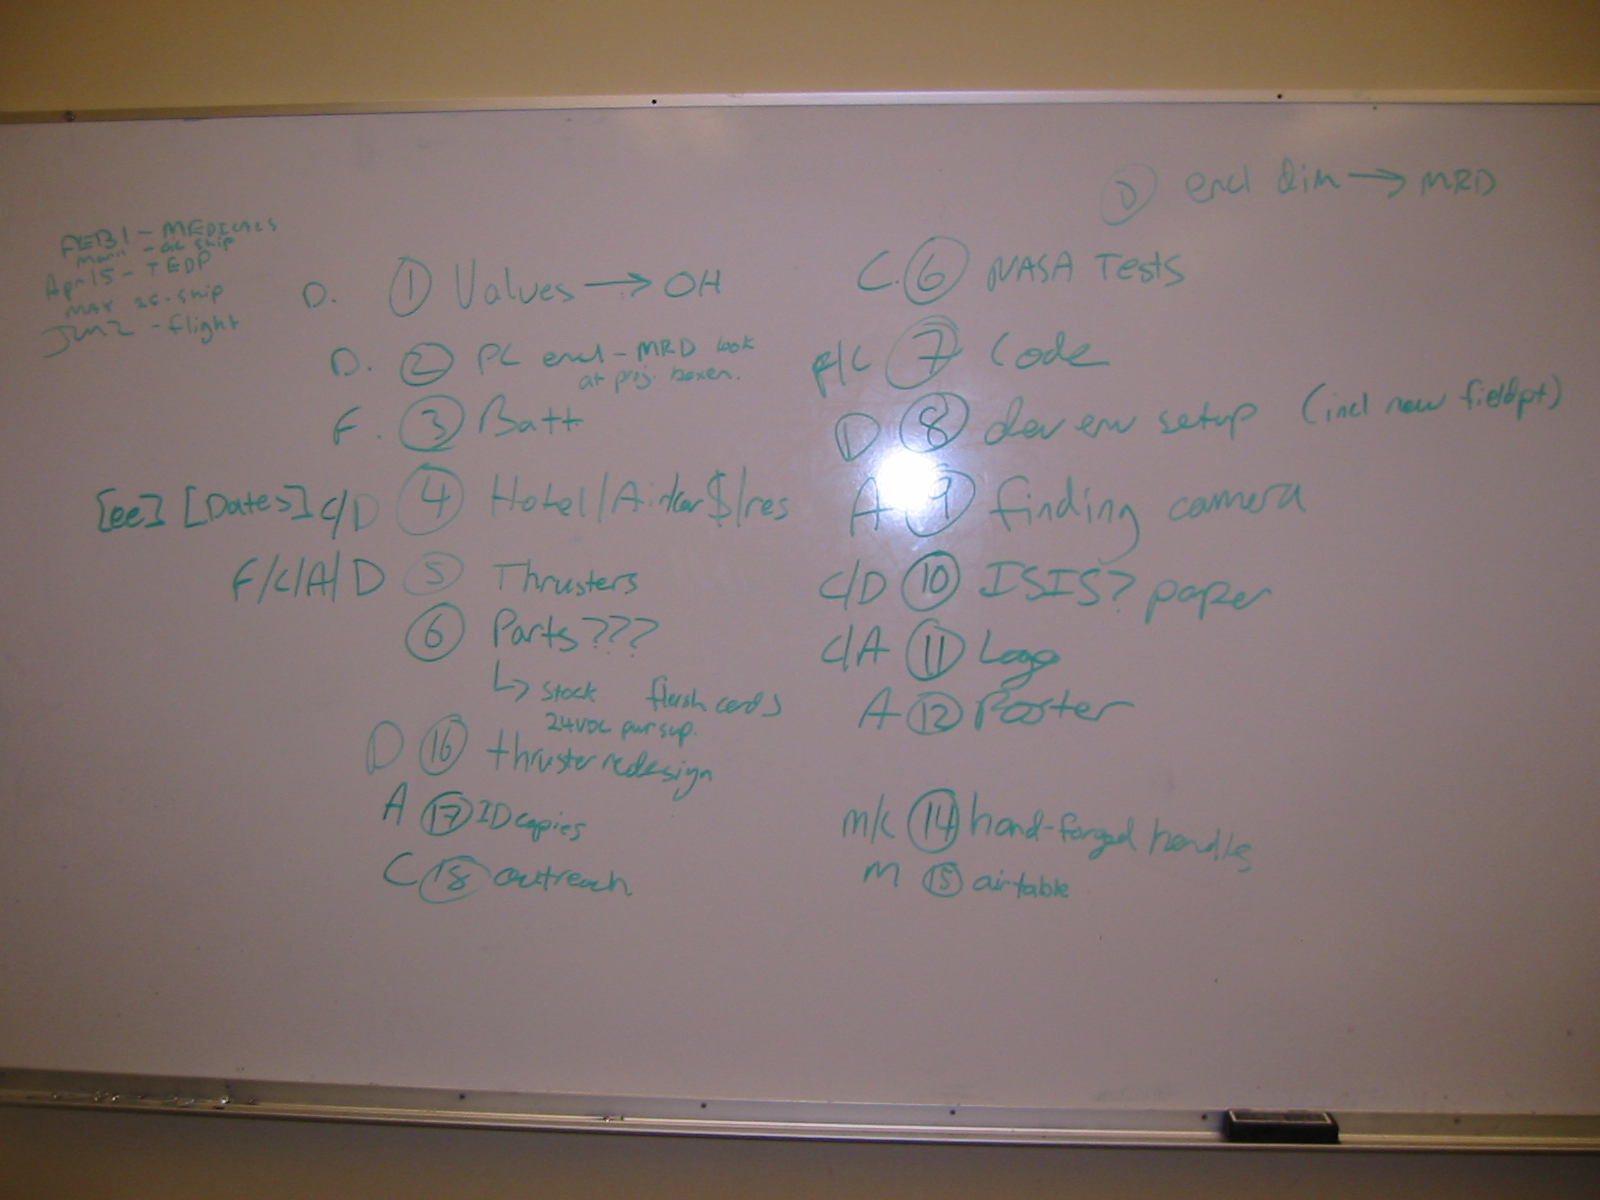 D encl dim → MRD
FEB 1 - MEDICALS
Mar 11 - ship
Apr 15 - TEDP
MAY 26 - ship
JUN 2 - flight
D. 1 Values → OH
D. 2 PC encl - MRD look
at proj. boxen.
F. 3 Batt
[ee] [Dates] C/D 4 Hotel/Air/car $/res
F/C/A/D 5 Thrusters
6 Parts???
↳ stock flash cards
24VDC pwr sup.
D 16 thruster redesign
A 17 ID copies
C 18 outreach
C. 6 NASA Tests
F/C 7 Code
D 8 dev env setup (incl new fieldpt)
A 9 finding camera
C/D 10 ISIS? paper
C/A 11 Logo
A 12 Poster
M/C 14 hand-forged handles
M 15 air table